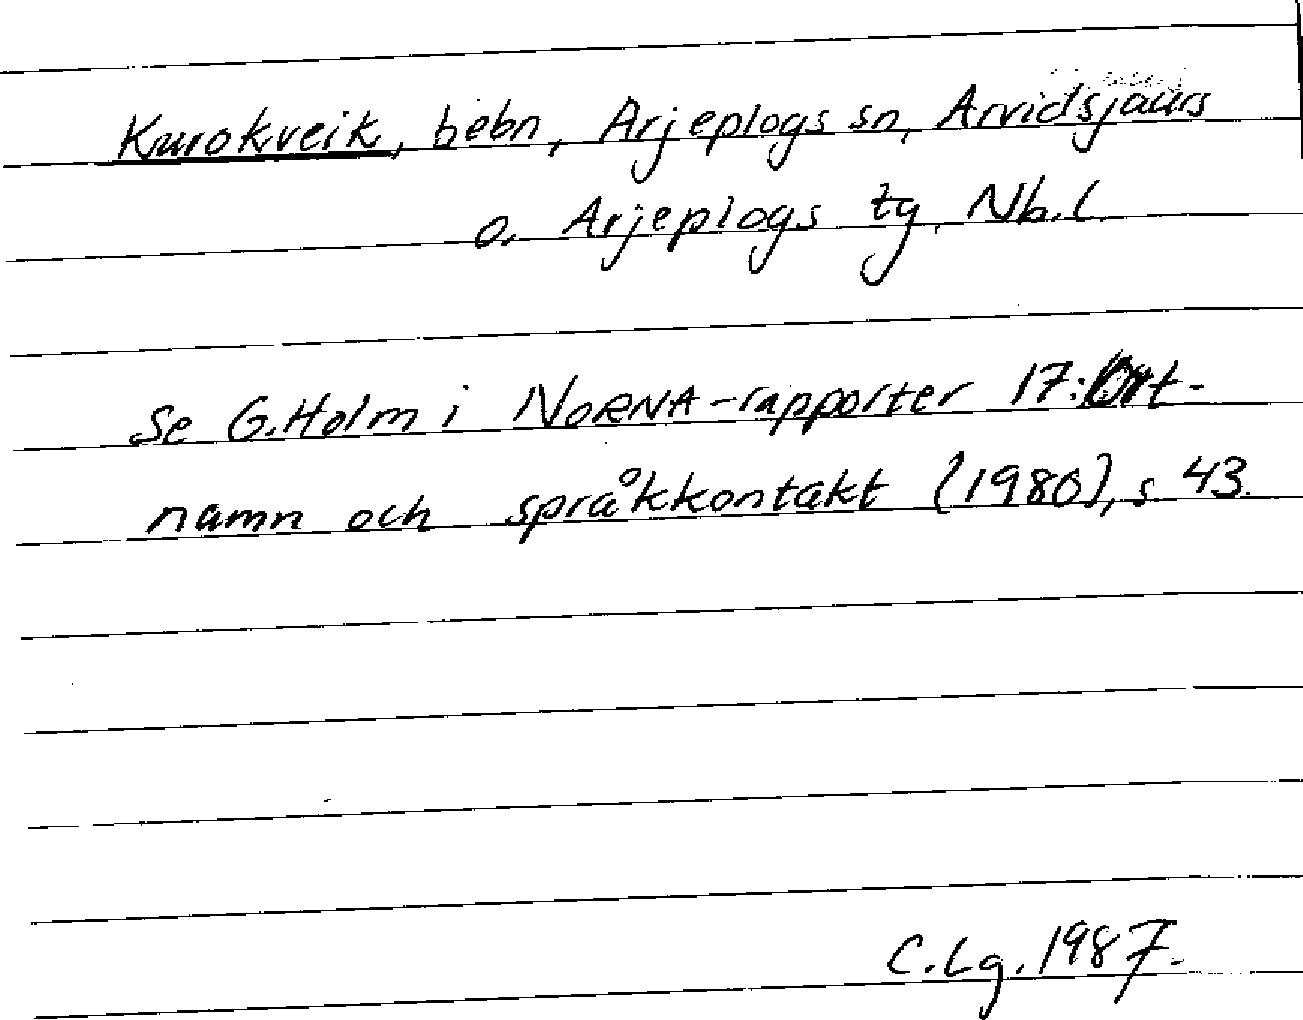 Kurokveik, bebn, Arjeplogs sn, Arvidsjaurs
o. Arjeplogs tg, Nb.l.
Se G. Holm i NORNA-rapporter 17: Ort-
namn och språkkontakt (1980), s 43.
C. Lg. 1987.